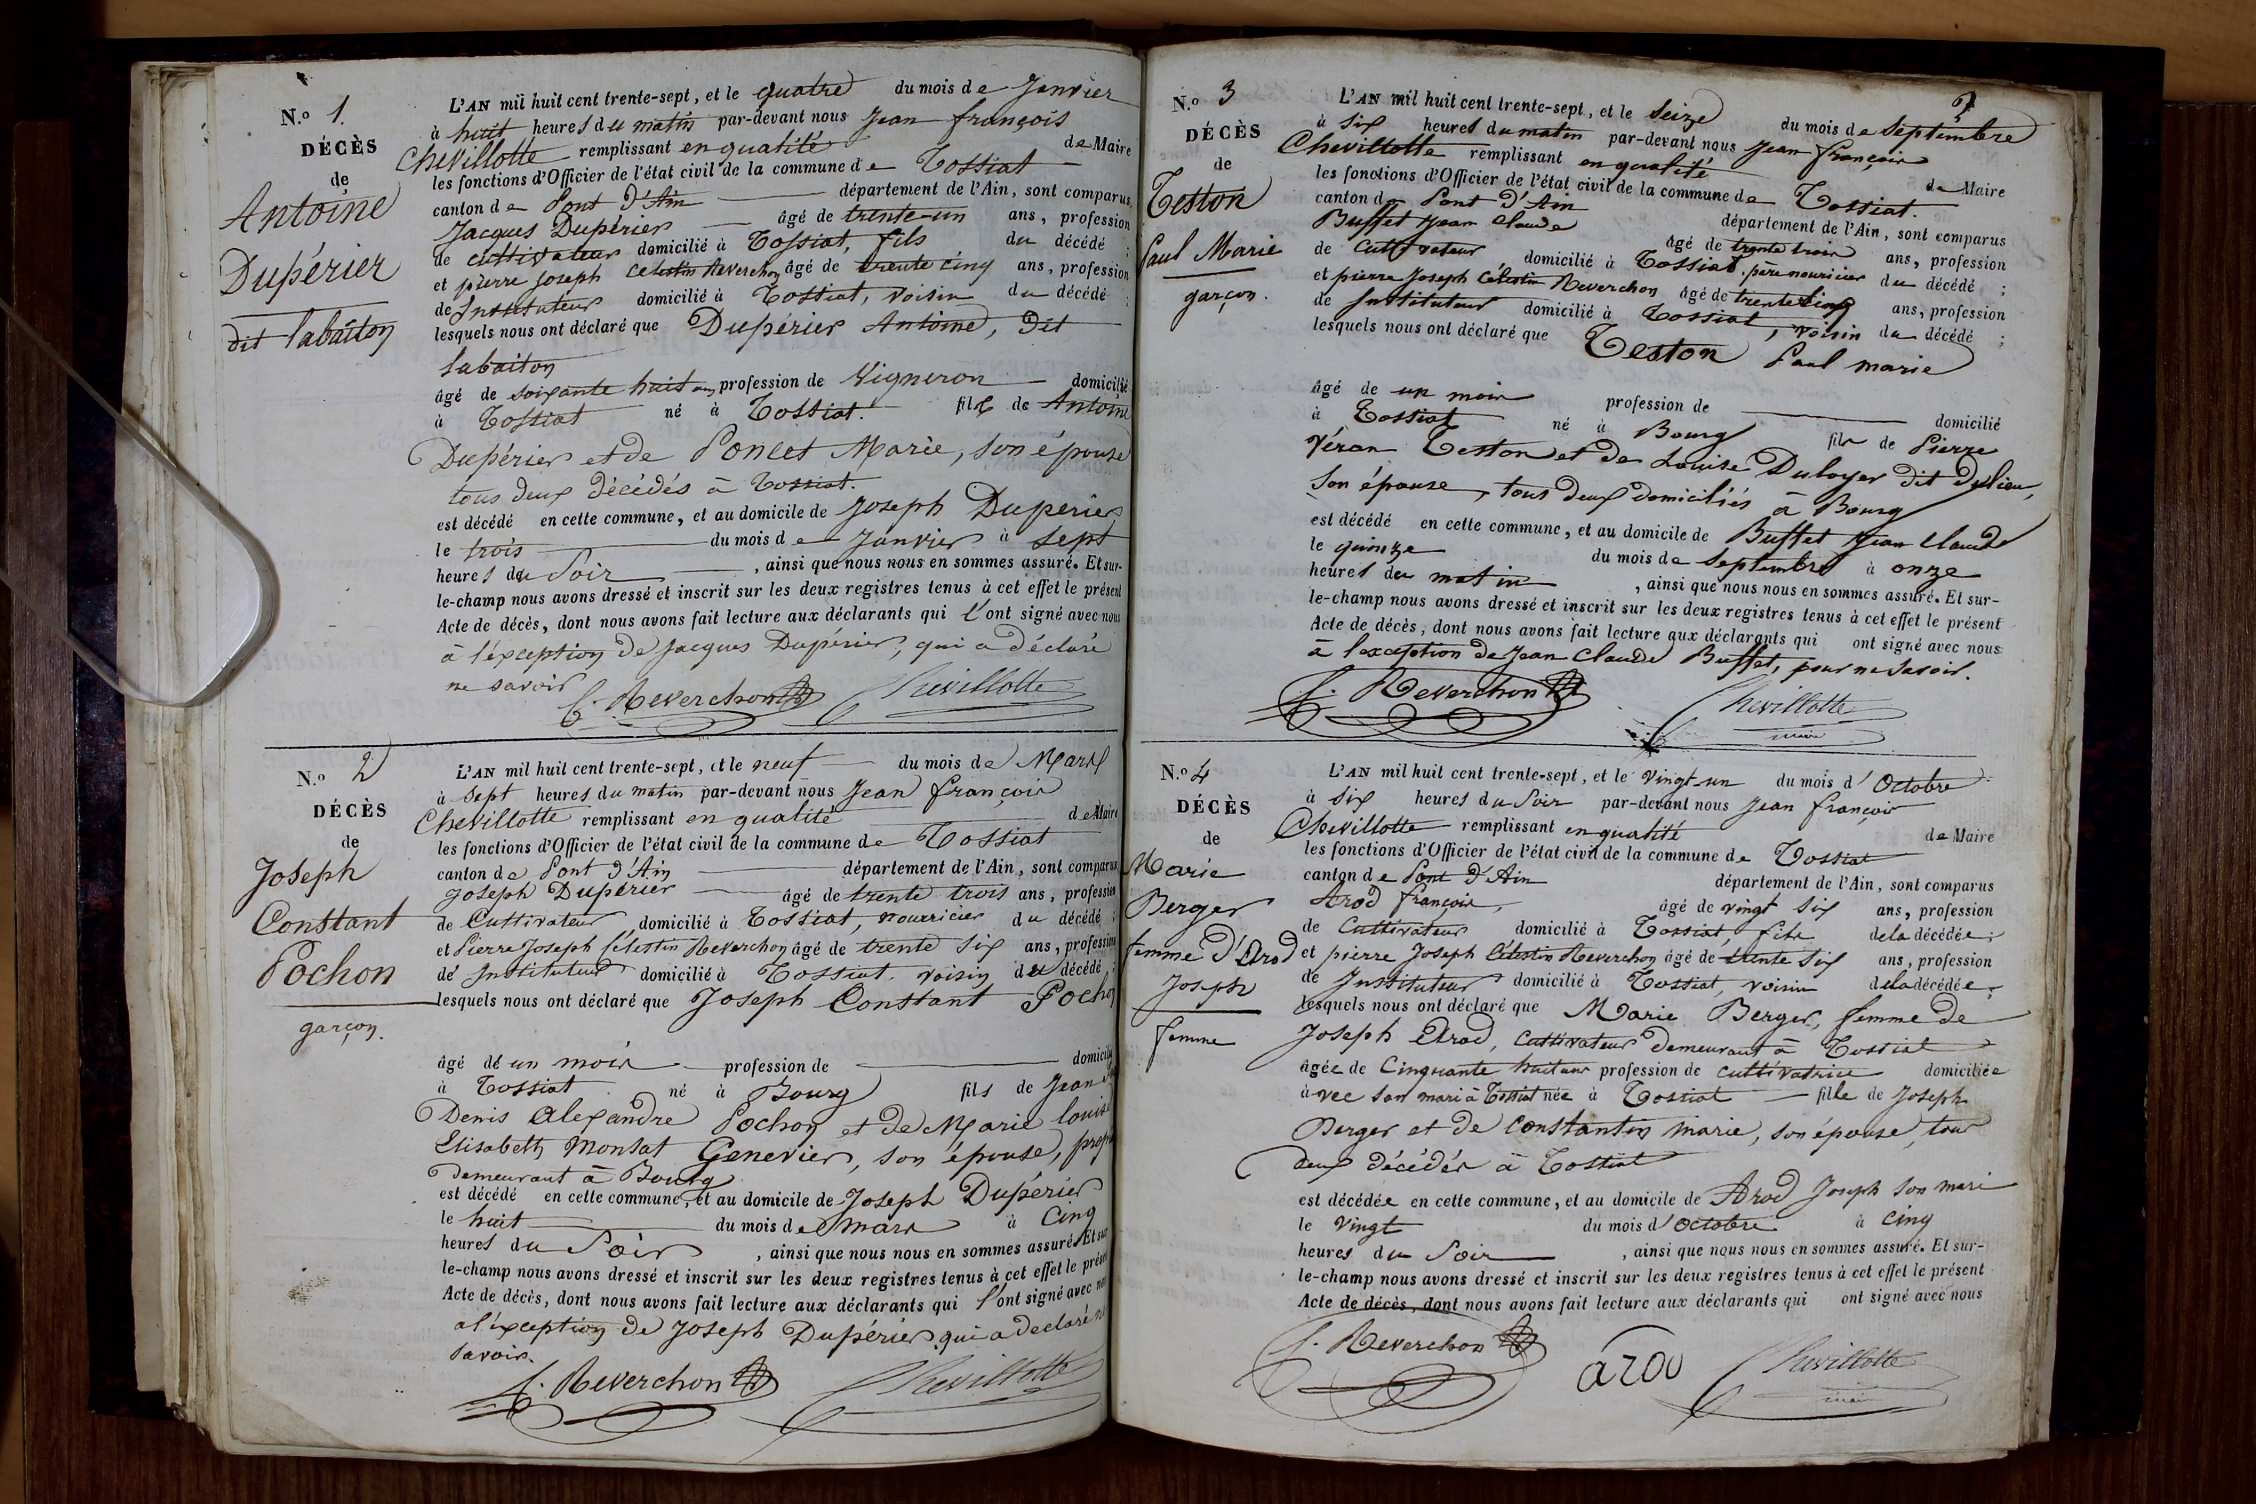 N.º 1.
DÉCÈS
de
Antoine
Dupérier
dit labaiton
L'AN mil huit cent trente-sept, et le quatre du mois de Janvier
à huit heures du matin par-devant nous Jean françois
Chevillotte remplissant en qualité de Maire
les fonctions d'Officier de l'état civil de la commune de Tossiat
canton de Pont d'Ain département de l'Ain, sont comparus
Jacques Dupérier âgé de trente-un ans, profession
de cultivateur domicilié à Tossiat, fils du décédé ;
et pierre Joseph Célestin Reverchon âgé de trente cinq ans, profession
de Instituteur domicilié à Tossiat, voisin du décédé ;
lesquels nous ont déclaré que Dupérier Antoine, dit
labaiton
âgé de soixante huit ans profession de Vigneron domicilié
à Tossiat né à Tossiat. fils de Antoine
Dupérier et de Poncet Marie, son épouse
tous deux décédés à Tossiat.
est décédé en cette commune, et au domicile de Joseph Dupérier
le trois du mois de Janvier à sept
heures du Soir , ainsi que nous nous en sommes assuré. Et sur-
le-champ nous avons dressé et inscrit sur les deux registres tenus à cet effet le présent
Acte de décès, dont nous avons fait lecture aux déclarants qui l'ont signé avec nous
à l'exception de Jacques Dupérier, qui a déclaré
ne savoir
C. Reverchon Chevillotte
N.º 2
DÉCÈS
de
Joseph
Constant
Pochon
garçon.
L'AN mil huit cent trente-sept, et le neuf du mois de Mars
à sept heures du matin par-devant nous Jean françois
Chevillotte remplissant en qualité de Maire
les fonctions d'Officier de l'état civil de la commune de Tossiat
canton de Pont d'Ain département de l'Ain, sont comparus
Joseph Dupérier âgé de trente trois ans, profession
de Cultivateur, domicilié à Tossiat, nourricier du décédé ;
et Pierre Joseph Célestin Reverchon âgé de trente six ans, profession
de Instituteur domicilié à Tossiat. voisin du décédé ;
lesquels nous ont déclaré que Joseph Constant Pochon
âgé de un mois profession de domicilié
à Tossiat né à Bourg fils de Jean
Denis Alexandre Pochon et de Marie louise
Elisabeth Monsat Genevier, son épouse,
demeurant à Bourg
est décédé en cette commune, et au domicile de Joseph Dupérier
le huit du mois de mars à Cinq
heures du Soir , ainsi que nous nous en sommes assuré. Et sur
le-champ nous avons dressé et inscrit sur les deux registres tenus à cet effet le présent
Acte de décès, dont nous avons fait lecture aux déclarants qui l'ont signé avec nous
à l'exception de Joseph Dupérier qui a déclaré ne
savoir.
C. Reverchon Chevillotte
6
N.º 3
DÉCÈS
de
Teston
Paul Marie
garçon.
L'AN mil huit cent trente-sept, et le seize du mois de septembre
à six heures du matin par-devant nous Jean françois
Chevillotte remplissant en qualité de Maire
les fonctions d'Officier de l'état civil de la commune de Tossiat.
canton de Pont d'Ain département de l'Ain, sont comparus
Buffet Jean Claude âgé de trente trois ans, profession
de Cultivateur, domicilié à Tossiat. père nouricier du décédé ;
et pierre Joseph Célestin Reverchon âgé de trente cinq ans, profession
de Instituteur domicilié à Tossiat, voisin du décédé ;
lesquels nous ont déclaré que Teston Paul marie
âgé de un mois profession de domicilié
à Tossiat né à Bourg fils de Pierre
Véran Teston et de Louise Duloyer dit Dulieu,
son épouse, tous deux domiciliés à Bourg
est décédé en cette commune, et au domicile de Buffet Jean Claude
le quinze du mois de septembre à onze
heures du matin , ainsi que nous nous en sommes assuré. Et sur-
le-champ nous avons dressé et inscrit sur les deux registres tenus à cet effet le présent
Acte de décès, dont nous avons fait lecture aux déclarants qui ont signé avec nous
à l'exception de Jean Claude Buffet, pour ne savoir.
C. Reverchon Chevillotte
maire
N.º 4
DÉCÈS
de
Marie
Berger
femme d'Arod
Joseph
femme
L'AN mil huit cent trente-sept, et le vingt-un du mois d'Octobre
à six heures du Soir par-devant nous Jean françois
Chevillotte remplissant en qualité de Maire
les fonctions d'Officier de l'état civil de la commune de Tossiat
canton de Pont d'Ain département de l'Ain, sont comparus
Arod françois, âgé de vingt six ans, profession
de Cultivateur domicilié à Tossiat, fils de la décédée ;
et pierre Joseph Célestin Reverchon âgé de trente six ans, profession
de Instituteur domicilié à Tossiat, voisin de la décédée ;
lesquels nous ont déclaré que Marie Berger, femme de
Joseph Arod, cultivateur demeurant à Tossiat
âgée de Cinquante huit ans profession de cultivatrice domiciliée
avec son mari à Tossiat née à Tossiat fille de Joseph
Berger et de Constantin marie, son épouse, tous
deux décédés à Tossiat
est décédée en cette commune, et au domicile de Arod Joseph son mari
le vingt du mois d'Octobre à cinq
heures du Soir , ainsi que nous nous en sommes assuré. Et sur-
le-champ nous avons dressé et inscrit sur les deux registres tenus à cet effet le présent
Acte de décès, dont nous avons fait lecture aux déclarants qui ont signé avec nous
C. Reverchon arod Chevillotte
maire